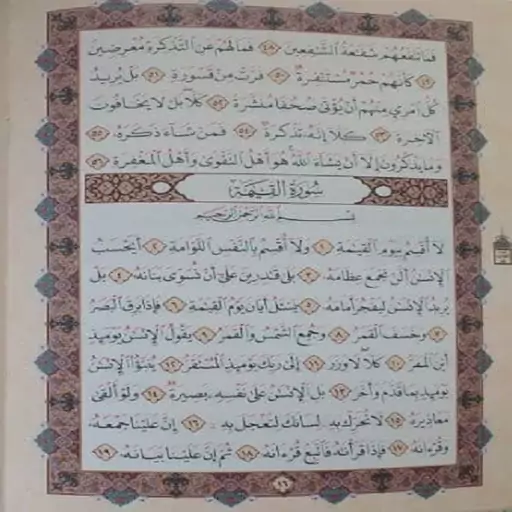 فَمَا تَنفَعُهُمْ شَفَٰعَةُ ٱلشَّٰفِعِينَ ٤٨ فَمَا لَهُمْ عَنِ ٱلتَّذْكِرَةِ مُعْرِضِينَ
٤٩ كَأَنَّهُمْ حُمُرٌ مُّسْتَنفِرَةٌ ٥٠ فَرَّتْ مِن قَسْوَرَةٍ ٥١ بَلْ يُرِيدُ
كُلُّ ٱمْرِئٍ مِّنْهُمْ أَن يُؤْتَىٰ صُحُفًا مُّنَشَّرَةً ٥٢ كَلَّا بَل لَّا يَخَافُونَ
ٱلْآخِرَةَ ٥٣ كَلَّا إِنَّهُۥ تَذْكِرَةٌ ٥٤ فَمَن شَآءَ ذَكَرَهُۥ ٥٥
وَمَا يَذْكُرُونَ إِلَّا أَن يَشَآءَ ٱللَّهُ هُوَ أَهْلُ ٱلتَّقْوَىٰ وَأَهْلُ ٱلْمَغْفِرَةِ ٥٦
سُورَةُ ٱلْقِيَٰمَةِ
بِسْمِ ٱللَّهِ ٱلرَّحْمَٰنِ ٱلرَّحِيمِ
لَآ أُقْسِمُ بِيَوْمِ ٱلْقِيَٰمَةِ ١ وَلَآ أُقْسِمُ بِٱلنَّفْسِ ٱللَّوَّامَةِ ٢ أَيَحْسَبُ
ٱلْإِنسَٰنُ أَلَّن نَّجْمَعَ عِظَامَهُۥ ٣ بَلَىٰ قَٰدِرِينَ عَلَىٰٓ أَن نُّسَوِّىَ بَنَانَهُۥ ٤ بَلْ
يُرِيدُ ٱلْإِنسَٰنُ لِيَفْجُرَ أَمَامَهُۥ ٥ يَسْـَٔلُ أَيَّانَ يَوْمُ ٱلْقِيَٰمَةِ ٦ فَإِذَا بَرِقَ ٱلْبَصَرُ
٧ وَخَسَفَ ٱلْقَمَرُ ٨ وَجُمِعَ ٱلشَّمْسُ وَٱلْقَمَرُ ٩ يَقُولُ ٱلْإِنسَٰنُ يَوْمَئِذٍ
أَيْنَ ٱلْمَفَرُّ ١٠ كَلَّا لَا وَزَرَ ١١ إِلَىٰ رَبِّكَ يَوْمَئِذٍ ٱلْمُسْتَقَرُّ ١٢ يُنَبَّؤُا۟ ٱلْإِنسَٰنُ
يَوْمَئِذٍۭ بِمَا قَدَّمَ وَأَخَّرَ ١٣ بَلِ ٱلْإِنسَٰنُ عَلَىٰ نَفْسِهِۦ بَصِيرَةٌ ١٤ وَلَوْ أَلْقَىٰ
مَعَاذِيرَهُۥ ١٥ لَا تُحَرِّكْ بِهِۦ لِسَانَكَ لِتَعْجَلَ بِهِۦٓ ١٦ إِنَّ عَلَيْنَا جَمْعَهُۥ
وَقُرْءَانَهُۥ ١٧ فَإِذَا قَرَأْنَٰهُ فَٱتَّبِعْ قُرْءَانَهُۥ ١٨ ثُمَّ إِنَّ عَلَيْنَا بَيَانَهُۥ ١٩